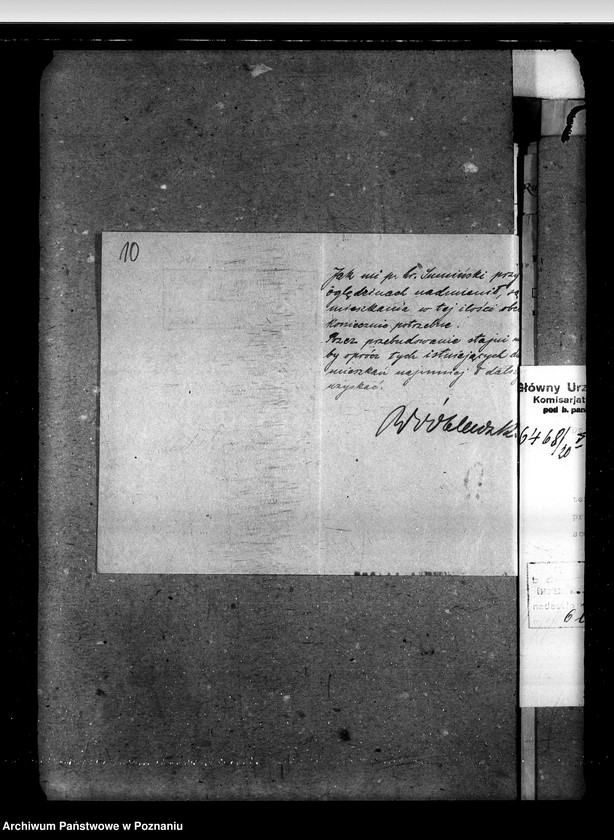 10
Jak mi p. br. Sumiński przy
oględzinach nadmienił, są
mieszkania w tej ilości obe
koniecznie potrzebne.
Przez przebudowanie stajni m
by oprócz tych istniejących d
mieszkań najmniej 8 dals
uzyskać.
Wróblewski.
Główny Urz
Komisarjat
pod b. pan
6468/20
Archiwum Państwowe w Poznaniu